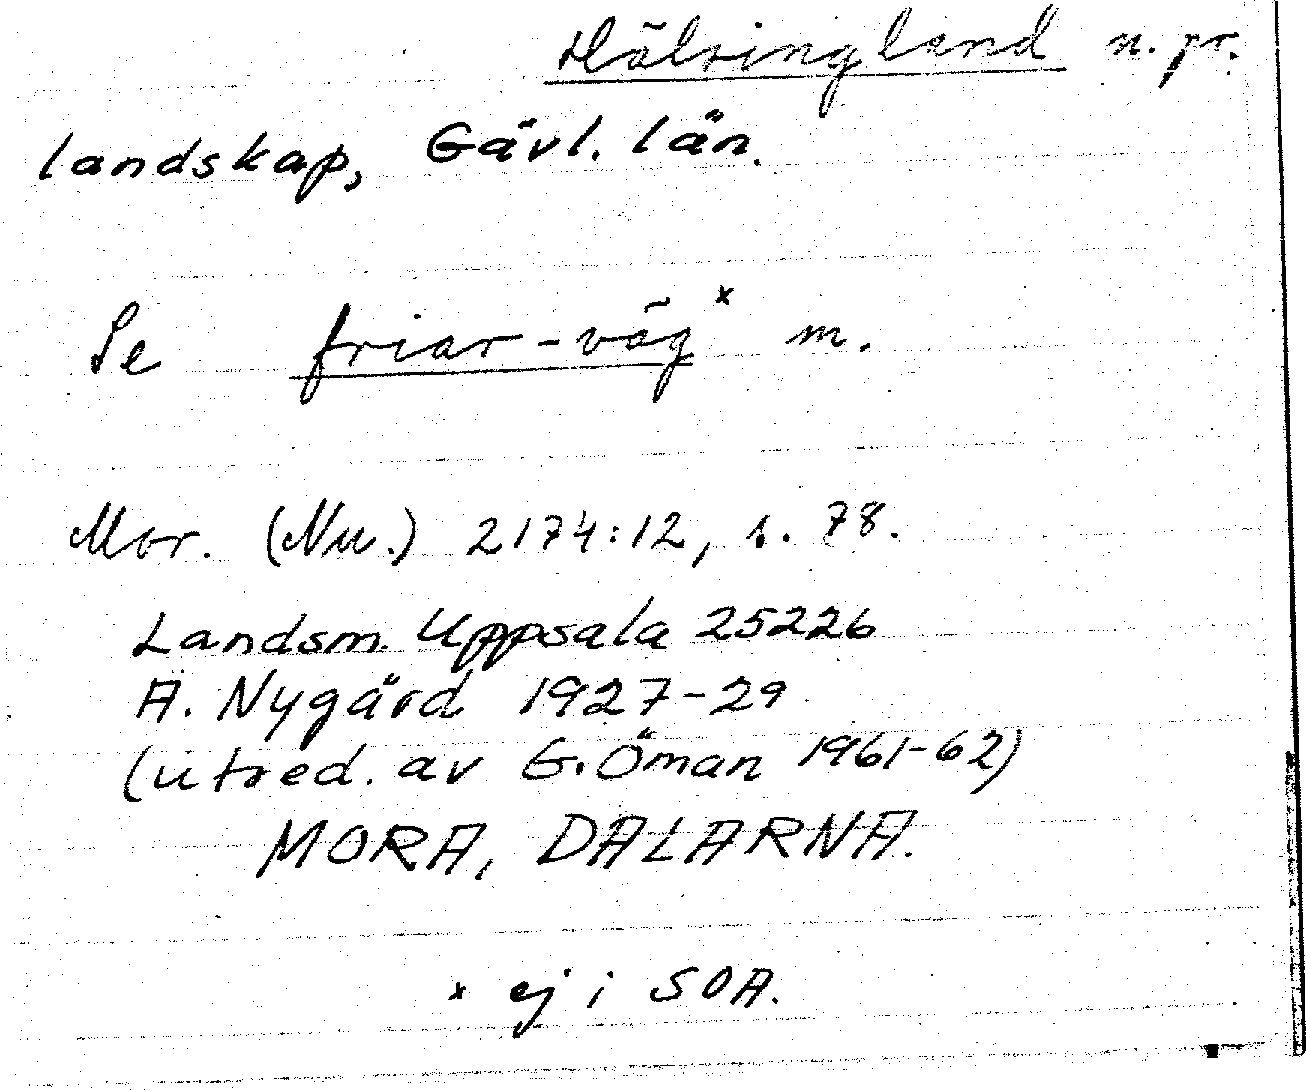 Hälsingland n. pr.
landskap, Gävl. län.
Se friar-väg x m.
Mor. (Nu.) 2174:12, s. 78.
Landsm. Uppsala 25226
A. Nygård 1927-29
(utred. av G. Öman 1961-62)
MORA, DALARNA.
x ej i SOA.